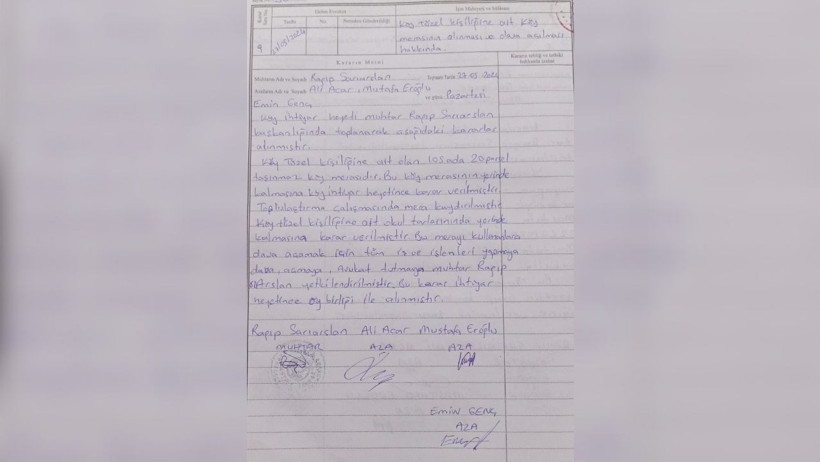 Gelen Evrakın
İşin Mahiyeti ve Hülâsası
Tarihi
No.
Köy Tüzel kişiliğine ait köy
merasının alınması ve dava açılması
hakkında.
Kararın Metni
Muhtarın Adı ve Soyadı Ragıp Sarıarslan
Toplantı Tarihi
Azaların Adı ve Soyadı Ali Acar, Mustafa Eroğlu
ve günü Pazartesi
Emin Genç
Köy ihtiyar heyeti muhtar Ragıp Sarıarslan
başkanlığında toplanarak aşağıdaki kararlar
alınmıştır.
Köy Tüzel kişiliğine ait olan 105 ada 20 parsel
taşınmaz köy merasıdır. Bu köy merasının yerinde
kalmasına köy ihtiyar heyetince karar verilmiştir.
Toplulaştırma çalışmasında mera kaydırılmıştır
Köy tüzel kişiliğine ait okul tarlasınında yerinde
kalmasına karar verilmiştir. Bu merayı kullananlara
dava açamak için tüm iş ve işlemleri yapmaya
dava açmaya, Avukat tutmaya muhtar Ragıp
Arslan yetkilendirilmiştir. Bu karar ihtiyar
heyetince oy birliği ile alınmıştır.
Ragıp Sarıarslan Ali Acar Mustafa Eroğlu
MUHTAR AZA AZA
Emin GENÇ
AZA